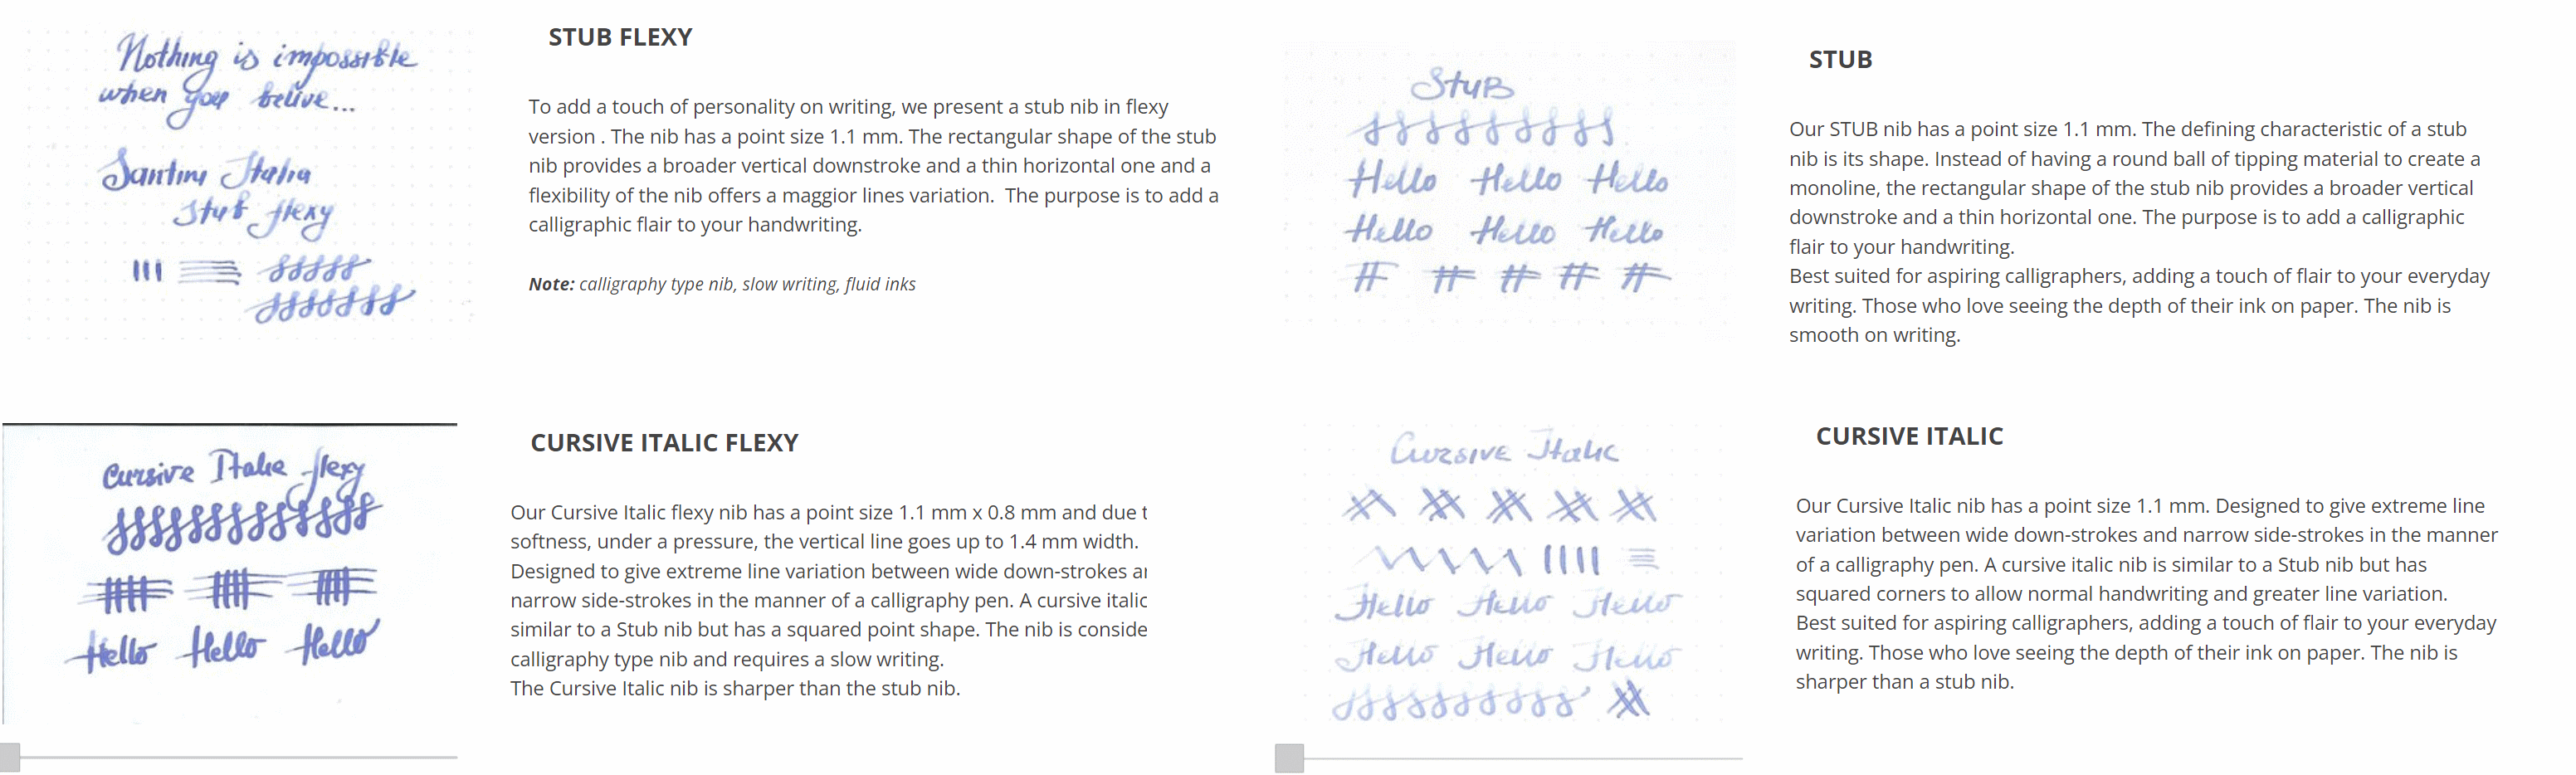 Nothing is impossible
when you belive...
Santini Italia
Stub flexy
STUB FLEXY
To add a touch of personality on writing, we present a stub nib in flexy
version . The nib has a point size 1.1 mm. The rectangular shape of the stub
nib provides a broader vertical downstroke and a thin horizontal one and a
flexibility of the nib offers a maggior lines variation.  The purpose is to add a
calligraphic flair to your handwriting.
Note: calligraphy type nib, slow writing, fluid inks
StuB
Hello Hello Hello
Hello Hello Hello
STUB
Our STUB nib has a point size 1.1 mm. The defining characteristic of a stub
nib is its shape. Instead of having a round ball of tipping material to create a
monoline, the rectangular shape of the stub nib provides a broader vertical
downstroke and a thin horizontal one. The purpose is to add a calligraphic
flair to your handwriting.
Best suited for aspiring calligraphers, adding a touch of flair to your everyday
writing. Those who love seeing the depth of their ink on paper. The nib is
smooth on writing.
Cursive Italic flexy
Hello Hello Hello
CURSIVE ITALIC FLEXY
Our Cursive Italic flexy nib has a point size 1.1 mm x 0.8 mm and due t
softness, under a pressure, the vertical line goes up to 1.4 mm width.
Designed to give extreme line variation between wide down-strokes ar
narrow side-strokes in the manner of a calligraphy pen. A cursive italic
similar to a Stub nib but has a squared point shape. The nib is conside
calligraphy type nib and requires a slow writing.
The Cursive Italic nib is sharper than the stub nib.
Cursive Italic
Hello Hello Hello
Hello Hello Hello
CURSIVE ITALIC
Our Cursive Italic nib has a point size 1.1 mm. Designed to give extreme line
variation between wide down-strokes and narrow side-strokes in the manner
of a calligraphy pen. A cursive italic nib is similar to a Stub nib but has
squared corners to allow normal handwriting and greater line variation.
Best suited for aspiring calligraphers, adding a touch of flair to your everyday
writing. Those who love seeing the depth of their ink on paper. The nib is
sharper than a stub nib.